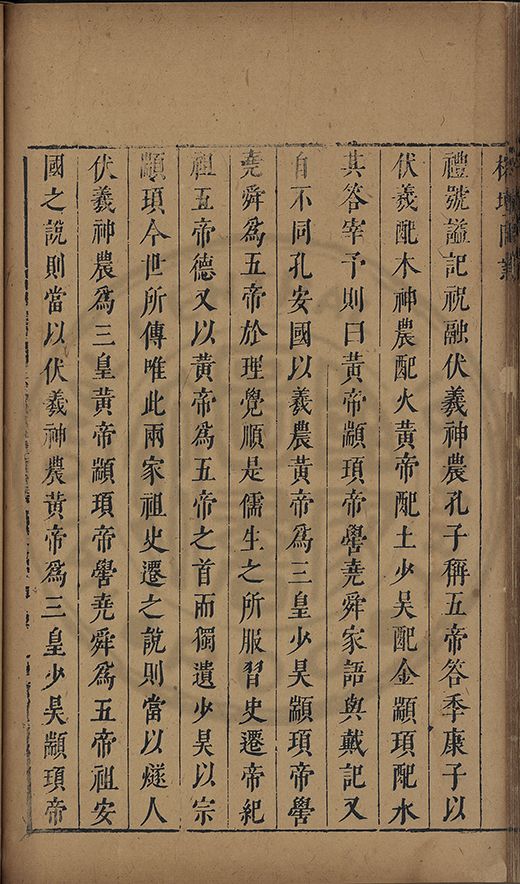 禮號謚記祝融伏羲神農孔子稱五帝答季康子以
伏羲配木神農配火黃帝配土少昊配金顓頊配水
其答宰予則曰黃帝顓頊帝嚳堯舜家語與戴記又
自不同孔安國以羲農黃帝爲三皇少昊顓頊帝嚳
堯舜爲五帝於理覺順是儒生之所服習史遷帝紀
祖五帝德又以黃帝爲五帝之首而獨遺少昊以宗
顓頊今世所傳唯此兩家祖史遷之說則當以燧人
伏羲神農爲三皇黃帝顓頊帝嚳堯舜爲五帝祖安
國之說則當以伏羲神農黃帝爲三皇少昊顓頊帝